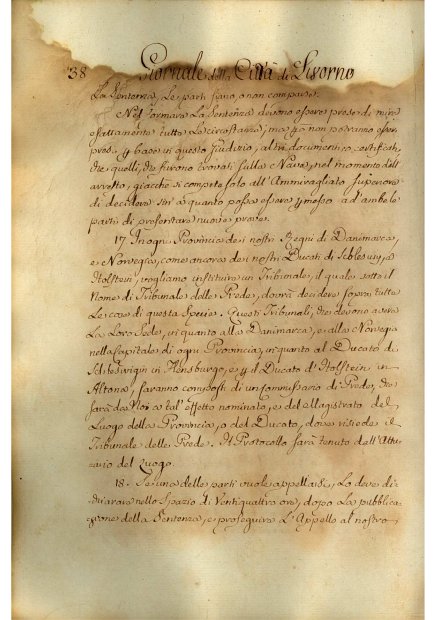 38 Giornale della Città di Livorno
La Sentenza, Le parti siano, o non comparse.
Nel formare La Sentenza devono essere prese di mira
esattamente tutte Le circostanze, ma
prese p base in questo giudizio, altri documenti, o certificati,
che quelli, che furono trovati sulla Nave, nel momento dell'
arresto, giacchè si compete solo all'Ammiragliato Superiore
di decidere sin' a quanto possa essere pmesso ad ambe le
parti di presentare nuove prove.
17. In ogni Provincia dei nostri Regni di Danimarca,
e Norvegia, come ancora dei nostri Ducati di
Holstein, vogliamo instituire un Tribunale, il quale sotto il
Nome di Tribunale delle Prede, dovrà decidere sopra tutte
Le cose di questa Specie. Questi Tribunali, che devono avere
La Loro Sede, in quanto alla Danimarca, e alla Norvegia
nella Capitale di ogni Provincia, in quanto al Ducato di
in Flensburgo, e p il Ducato d'Holstein in
Altona, saranno composti di un Commissario di Prede, che
sarà da Noi a tal' effetto nominato, e del Magistrato del
Luogo della Provincia, o del Ducato, dove risiede il
Tribunale delle Prede. Il Protocollo sarà tenuto dall'Attu=
ario del Luogo.
18. Se una delle parti vuole appellarsi, Lo deve di=
chiarare nello Spazio di Ventiquattro ore, dopo La pubblica=
zione della Sentenza, e proseguire L'Appello al nostro